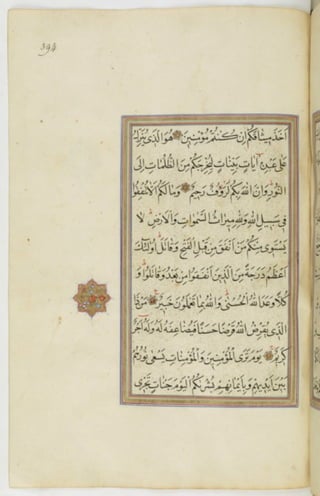 394
اَخَذَ مِيثَاقَكُمْ اِنْ كُنْتُمْ مُؤْمِنِينَ هُوَ الَّذِى يُنَزِّلُ
عَلَى عَبْدِهِ آيَاتٍ بَيِّنَاتٍ لِيُخْرِجَكُمْ مِنَ الظُّلُمَاتِ اِلَى
النُّورِ وَاِنَّ اللّٰهَ بِكُمْ لَرَؤُفٌ رَحِيمٌ وَمَا لَكُمْ اَلَّا تُنْفِقُوا
فِى سَبِيلِ اللّٰهِ وَلِلّٰهِ مِيرَاثُ السَّمٰوَاتِ وَالْاَرْضِ لَا
يَسْتَوِى مِنْكُمْ مَنْ اَنْفَقَ مِنْ قَبْلِ الْفَتْحِ وَقَاتَلَ اُولٰئِكَ
اَعْظَمُ دَرَجَةً مِنَ الَّذِينَ اَنْفَقُوا مِنْ بَعْدُ وَقَاتَلُوا وَ
كُلًّا وَعَدَ اللّٰهُ الْحُسْنَى وَاللّٰهُ بِمَا تَعْمَلُونَ خَبِيرٌ مَنْ ذَا
الَّذِى يُقْرِضُ اللّٰهَ قَرْضًا حَسَنًا فَيُضَاعِفَهُ لَهُ وَلَهُ اَجْرٌ
كَرِيمٌ يَوْمَ تَرَى الْمُؤْمِنِينَ وَالْمُؤْمِنَاتِ يَسْعَى نُورُهُمْ
بَيْنَ اَيْدِيهِمْ وَبِاَيْمَانِهِمْ بُشْرٰيكُمُ الْيَوْمَ جَنَّاتٌ تَجْرِى